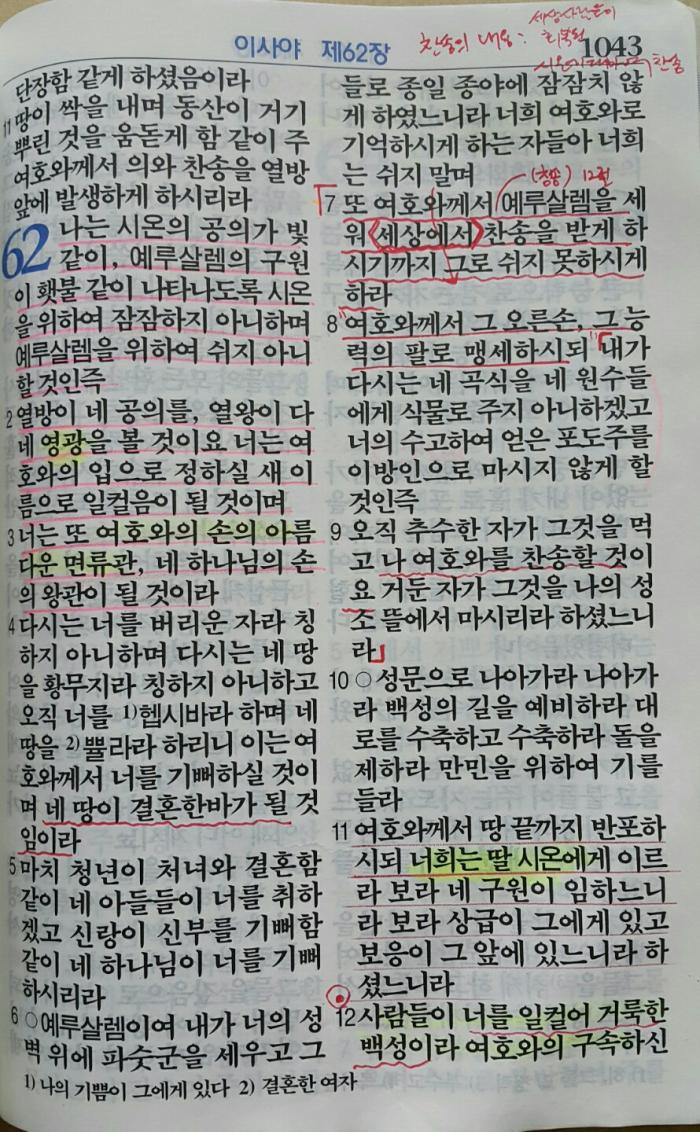 이사야 제62장
찬송의 내용: 세상사람들이
회복된
1043
단장함 같게 하셨음이라
11 땅이 싹을 내며 동산이 거기
뿌린 것을 움돋게 함 같이 주
여호와께서 의와 찬송을 열방
앞에 발생하게 하시리라
62 나는 시온의 공의가 빛
같이, 예루살렘의 구원
이 횃불 같이 나타나도록 시온
을 위하여 잠잠하지 아니하며
예루살렘을 위하여 쉬지 아니
할 것인즉
2 열방이 네 공의를, 열왕이 다
네 영광을 볼 것이요 너는 여
호와의 입으로 정하실 새 이
름으로 일컬음이 될 것이며
3 너는 또 여호와의 손의 아름
다운 면류관, 네 하나님의 손
의 왕관이 될 것이라
4 다시는 너를 버리운 자라 칭
하지 아니하며 다시는 네 땅
을 황무지라 칭하지 아니하고
오직 너를 1)헵시바라 하며 네
땅을 2)쁄라라 하리니 이는 여
호와께서 너를 기뻐하실 것이
며 네 땅이 결혼한바가 될 것
임이라
5 마치 청년이 처녀와 결혼함
같이 네 아들들이 너를 취하
겠고 신랑이 신부를 기뻐함
같이 네 하나님이 너를 기뻐
하시리라
6 ○예루살렘이여 내가 너의 성
벽 위에 파숫군을 세우고 그
들로 종일 종야에 잠잠치 않
게 하였느니라 너희 여호와로
기억하시게 하는 자들아 너희
는 쉬지 말며
(찬송) 12절
7 또 여호와께서 예루살렘을 세
워 세상에서 찬송을 받게 하
시기까지 그로 쉬지 못하시게
하라
8 여호와께서 그 오른손, 그 능
력의 팔로 맹세하시되 내가
다시는 네 곡식을 네 원수들
에게 식물로 주지 아니하겠고
너의 수고하여 얻은 포도주를
이방인으로 마시지 않게 할
것인즉
9 오직 추수한 자가 그것을 먹
고 나 여호와를 찬송할 것이
요 거둔 자가 그것을 나의 성
소 뜰에서 마시리라 하셨느니
라
10 ○성문으로 나아가라 나아가
라 백성의 길을 예비하라 대
로를 수축하고 수축하라 돌을
제하라 만민을 위하여 기를
들라
11 여호와께서 땅 끝까지 반포하
시되 너희는 딸 시온에게 이르
라 보라 네 구원이 임하느니
라 보라 상급이 그에게 있고
보응이 그 앞에 있느니라 하
셨느니라
12 사람들이 너를 일컬어 거룩한
백성이라 여호와의 구속하신
1) 나의 기쁨이 그에게 있다 2) 결혼한 여자